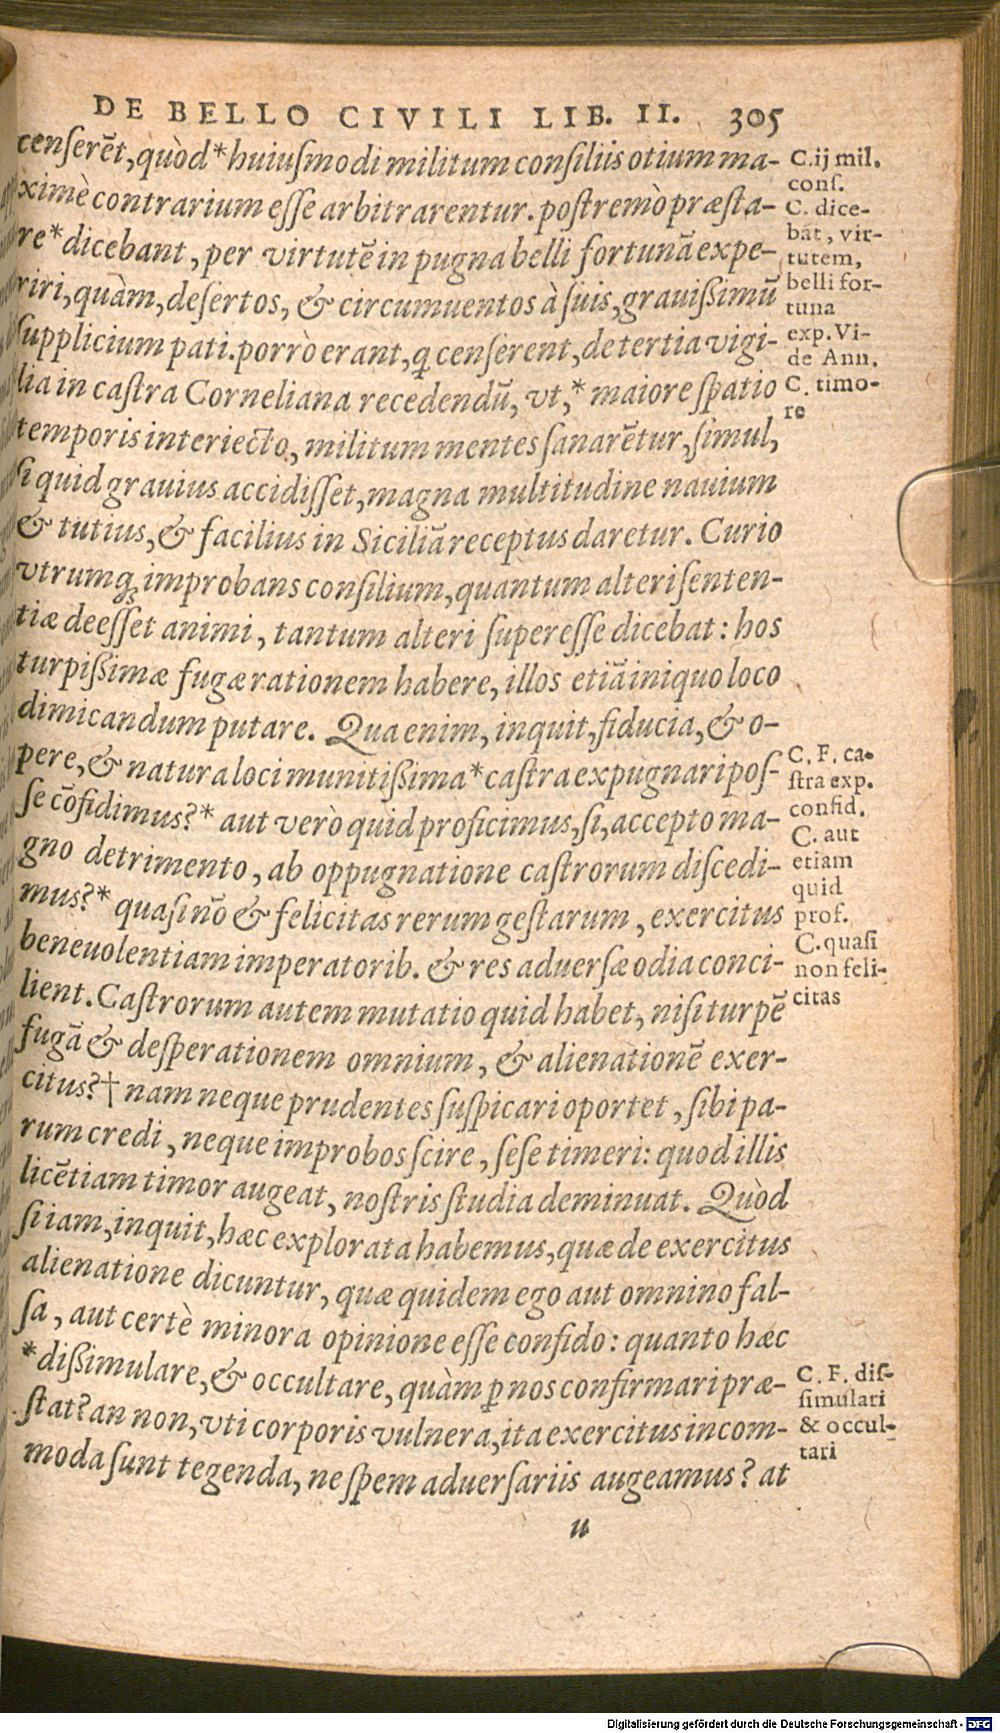 DE BELLO CIVILI LIB. II. 305
censerēt, quòd * huiusmodi militum consiliis otium ma-
ximè contrarium esse arbitrarentur. postremò præsta-
re * dicebant, per virtutē in pugna belli fortunā expe-
riri, quàm, desertos, & circumuentos à suis, grauissimū
supplicium pati. porrò erant, ꝗ censerent, de tertia vigi-
lia in castra Corneliana recedendū, vt, * maiore spatio
temporis interiecto, militum mentes sanarētur, simul,
si quid grauius accidisset, magna multitudine nauium
& tutius, & facilius in Siciliā receptus daretur. Curio
vtrumq; improbans consilium, quantum alteri senten-
tiæ deesset animi, tantum alteri superesse dicebat: hos
turpissimæ fugæ rationem habere, illos etiā iniquo loco
dimicandum putare. Qua enim, inquit, fiducia, & o-
pere, & natura loci munitissima * castra expugnari pos-
se cōfidimus? * aut verò quid proficimus, si, accepto ma-
gno detrimento, ab oppugnatione castrorum discedi-
mus? * quasi nō & felicitas rerum gestarum, exercitus
beneuolentiam imperatorib. & res aduersæ odia conci-
lient. Castrorum autem mutatio quid habet, nisi turpē
fugā & desperationem omnium, & alienationē exer-
citus? † nam neque prudentes suspicari oportet, sibi pa-
rum credi, neque improbos scire, sese timeri: quod illis
licētiam timor augeat, nostris studia deminuat. Quòd
si iam, inquit, hæc explorata habemus, quæ de exercitus
alienatione dicuntur, quæ quidem ego aut omnino fal-
sa, aut certè minora opinione esse confido: quanto hæc
* dissimulare, & occultare, quàm ꝑ nos confirmari præ-
stat? an non, vti corporis vulnera, ita exercitus incom-
moda sunt tegenda, ne spem aduersariis augeamus? at
u
C. ij mil.
cons.
C. dice-
bat, vir-
tutem,
belli for-
tuna
exp. Vi-
de Ann.
C. timo-
re
C. F. ca-
stra exp.
confid.
C. aut
etiam
quid
prof.
C. quasi
non feli-
citas
C. F. dis-
simulari
& occul-
tari
Digitalisierung gefördert durch die Deutsche Forschungsgemeinschaft - DFG